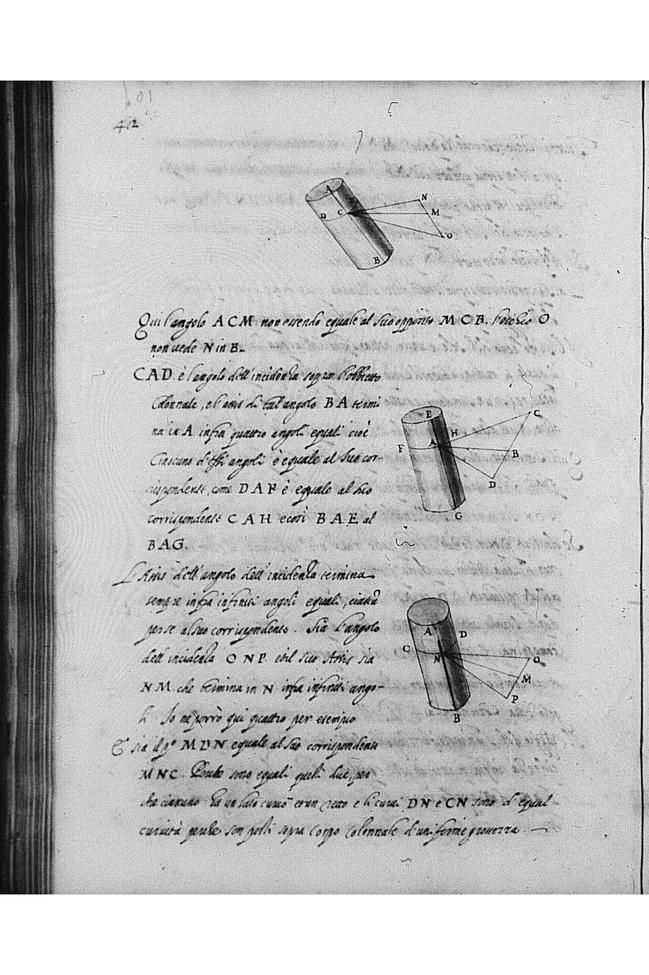 42
A
D
C
B
N
M
O
Qui l'angolo A C M non essendo equale al suo opposito M C B. l'occhio O
non vede N in B.
C A D è l'angolo dell'incidenza sopra l'obbietto
Colonnale, e l'axis di tal angolo B A termi
na in A infra quattro angoli equali cioè
Ciascuno d'essi angoli è equale al suo cor-
rispondente, come D A F è equale al suo
corrispondente C A H e così B A E al
B A G.
E
H
A
F
C
B
D
G
L'Axis dell'angolo dell'incidenza termina
sempre infra infiniti angoli equali, ciascũ
per se al suo corrispondente. Sia l'angolo
dell'incidenza O N P. et il suo Axis sia
N M. che termina in N infra infiniti ango-
li. Io ne porrò qui quattro per esempio
A
D
C
N
O
M
P
B
E sia il pº M D N equale al suo corrispondente
M N C. sono equali queli due, per
che ciascuno ha un lato curvo et un retto e li curvi D N e C N sono d'equal
curvità perche son posti sopra Corpo Colonnale d'uniforme grossezza.